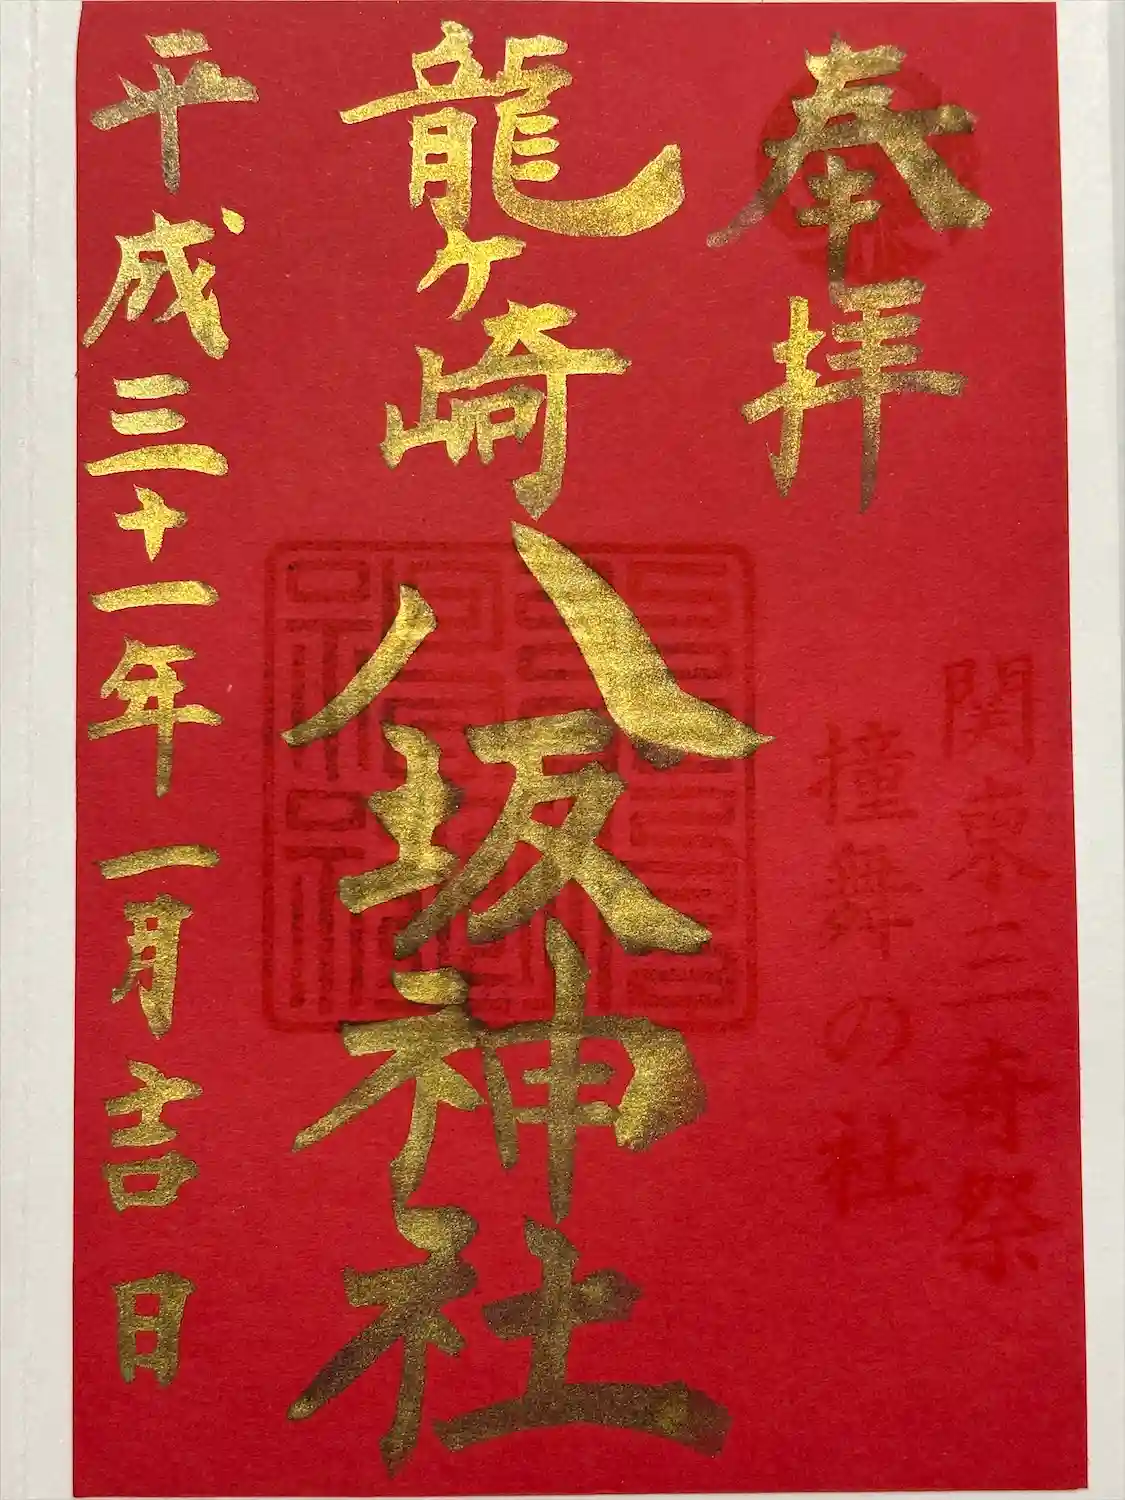 奉拝
関東三奇祭
撞舞の社
龍ヶ崎八坂神社
平成三十一年一月吉日